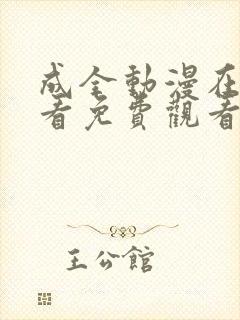 成全動漫在
看免費觀看
王公館